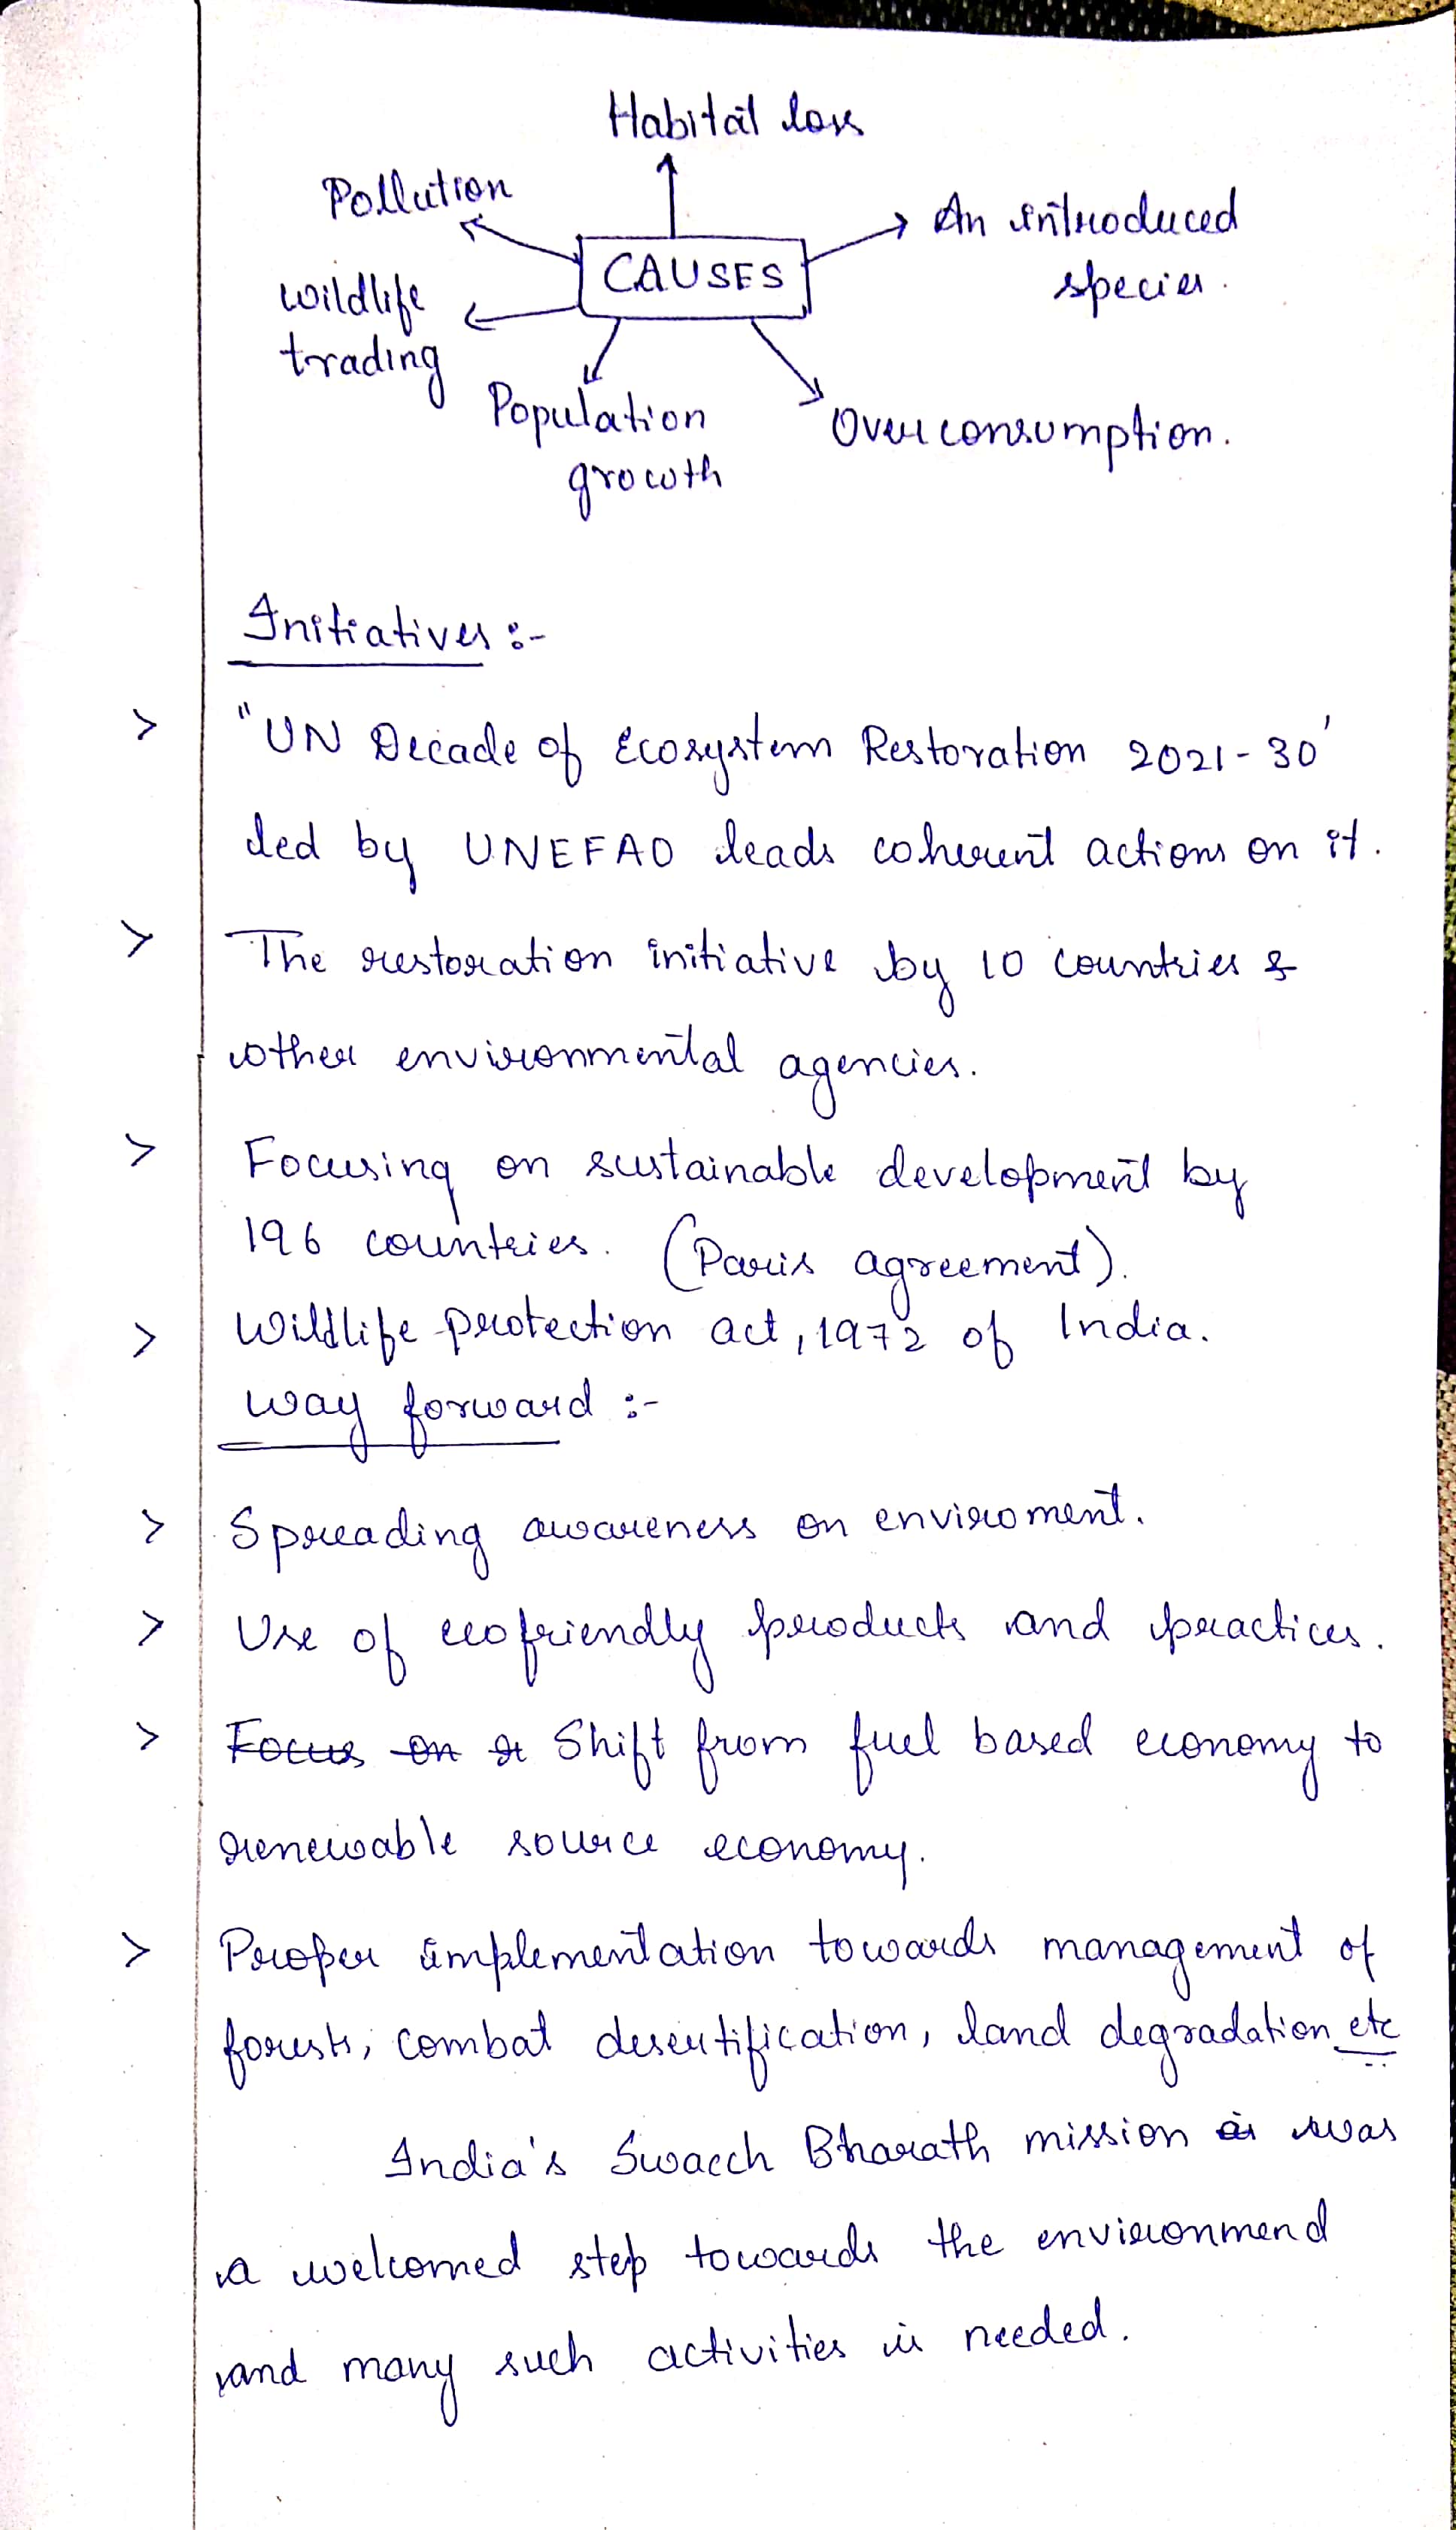 Habitat loss
Pollution
An introduced
species.
CAUSES
wildlife
trading
Population
growth
Overconsumption.
Initiatives :-
> "UN Decade of Ecosystem Restoration 2021-30'
led by UNEFAO leads coherent actions on it.
> The restoration initiative by 10 countries &
other environmental agencies.
> Focusing on sustainable development by
196 countries. (Paris agreement).
> Wildlife protection act, 1972 of India.
way forward :-
> Spreading awareness on enviroment.
> Use of ecofriendly products and practices.
> Focus on Shift from fuel based economy to
renewable source economy.
> Proper implementation towards management of
forests, combat desertification, land degradation etc
India's Swacch Bharath mission is was
a welcomed step towards the environmend
and many such activities is needed.